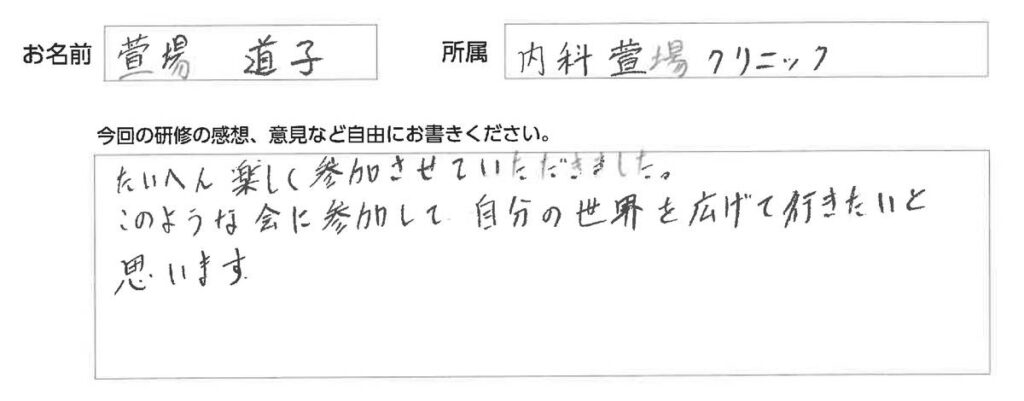 お名前 萱場 道子 所属 内科萱場クリニック
今回の研修の感想、意見など自由にお書きください。
たいへん楽しく参加させていただきました。
このような会に参加して 自分の世界を広げて行きたいと
思います